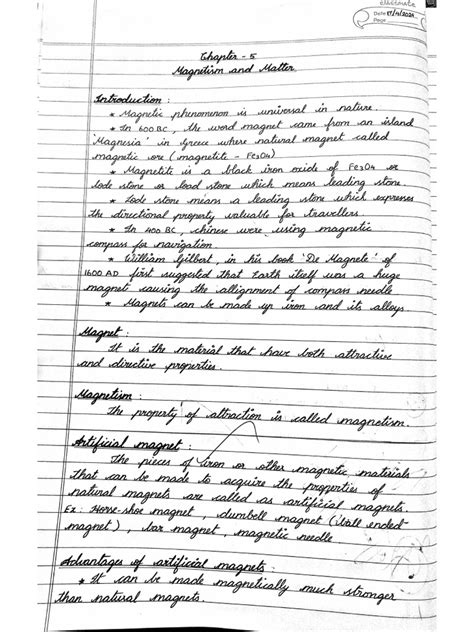 classmate
Date 17/11/2024
Page
Chapter - 5
Magnetism and Matter
Introduction :
* Magnetic phenomenon is universal in nature.
* In 600 BC, the word magnet came from an island
'Magnesia' in Greece where natural magnet called
magnetic ore (magnetite - Fe3O4)
* Magnetite is a black iron oxide of Fe3O4 or
lode stone or load stone which means leading stone.
* Lode stone means a leading stone which expresses
the directional property valuable for travellers.
* In 400 BC, chinese were using magnetic
compass for navigation.
* William Gilbert, in his book 'De Magnete' of
1600 AD first suggested that Earth itself was a huge
magnet causing the allignment of compass needle
* Magnets can be made up iron and its alloys.
Magnet :
It is the material that have both attractive
and directive properties.
Magnetism :
The property of attraction is called magnetism.
Artificial magnet :
The pieces of iron or other magnetic materials
that can be made to acquire the properties of
natural magnets are called as artificial magnets.
Ex: Horse-shoe magnet, dumbell magnet (ball ended-
magnet), bar magnet, magnetic needle
Advantages of artificial magnets :
* It can be made magnetically much stronger
than natural magnets.